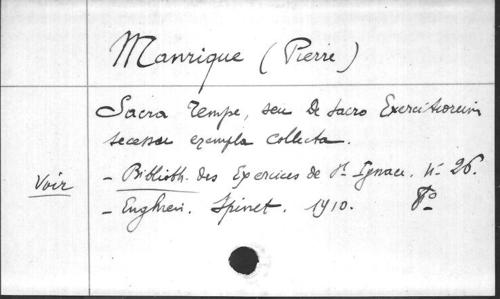 Manrique (Pierre)
Sacra Tempe, seu de sacro Exercitiorum
secessu exempla collecta.
Voir
- Biblioth. des Exercices de St Ignace. n° 26.
- Enghien. Spinet. 1910. 8°